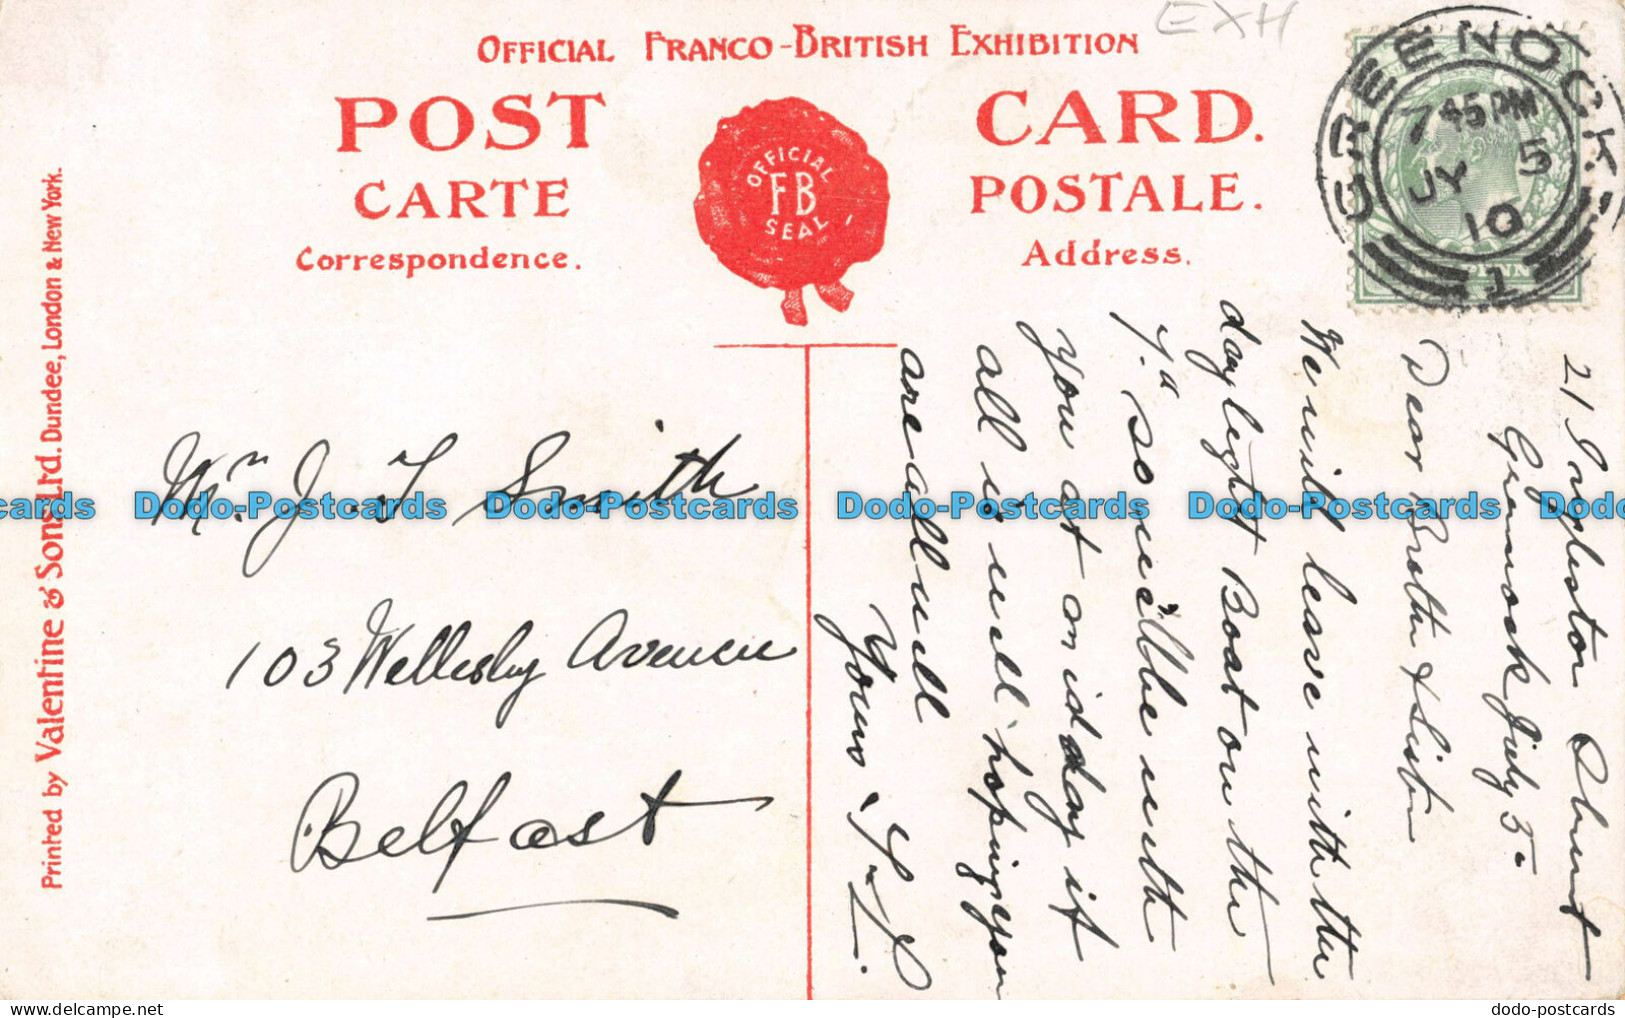 EXH
OFFICIAL FRANCO-BRITISH EXHIBITION
POST CARD.
CARTE POSTALE.
Correspondence. Address.
OFFICIAL
FB
SEAL
GREENOCK
7 45 PM
JY 5
10
1
Printed by Valentine & Sons Ltd. Dundee, London & New York.
Mr. J. T. Smith
103 Wellesley Avenue
Belfast
21 Ingleston Street
Greenock July 5
Dear Brother & Sister
We will leave with the
day light Boat on the
7th so will be with
you at midday if
all is well hoping you
are all well
Yours
Dodo-Postcards Dodo-Postcards Dodo-Postcards Dodo-Postcards Dodo-Postcards
dodo-postcards